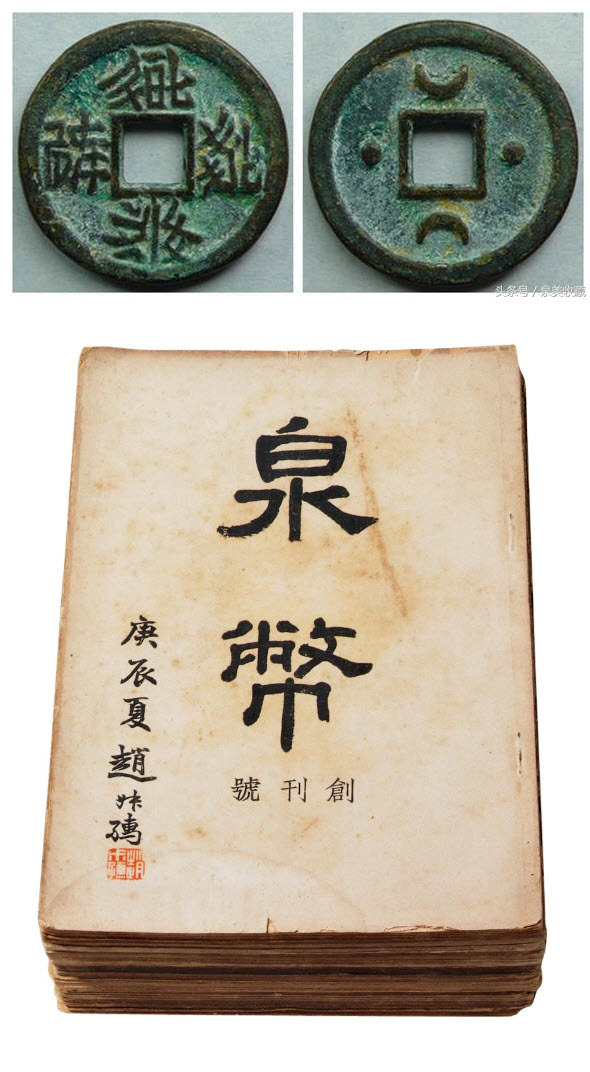 头条号 / 泉美收藏
泉幣
創刊號
庚辰夏趙叔孺